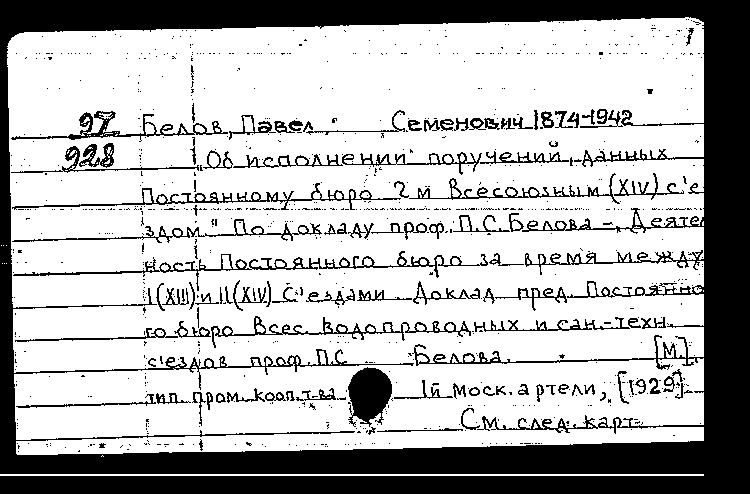 1
97 Белов, Павел Семенович 1874-1942
928 "Об исполнении поручений, данных
Постоянному бюро 2м Всесоюзным (XIV) с'е-
здом." По докладу проф. П.С. Белова –, Деятель
ность Постоянного бюро за время между
I(XIII) и II(XIV) С'ездами. Доклад пред. Постоянно
го бюро Всес. водопроводных и сан.-техн.
с'ездов проф. П.С Белова. [М.],
тип. пром. кооп. т-ва 1й моск. артели, [1929].
См. след. карт.